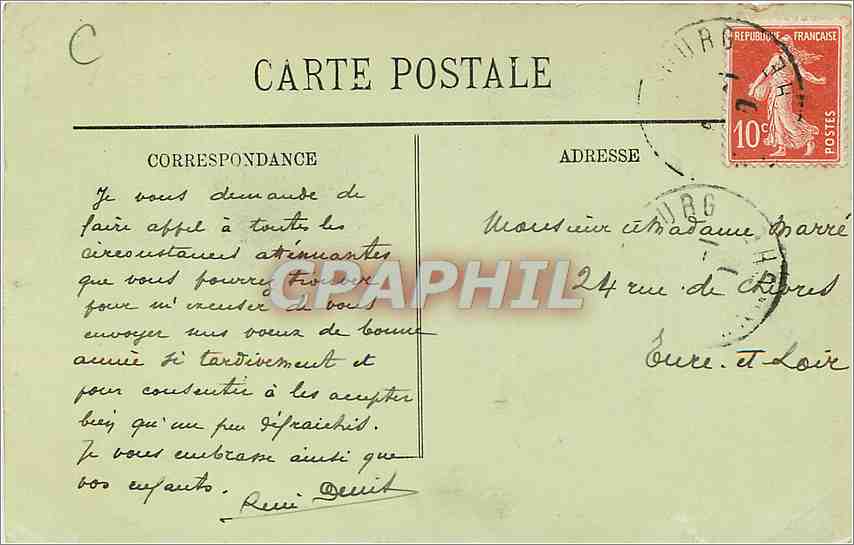 C
CARTE POSTALE
REPUBLIQUE FRANÇAISE
10c
POSTES
CORRESPONDANCE
Je vous demande de
faire appel à toutes les
circonstances atténuantes
que vous pourrez trouver
pour m'excuser de vous
envoyer mes voeux de bonne
année si tardivement et
pour consentir à les accepter
bien qu'un peu défraichis.
Je vous embrasse ainsi que
vos enfants.
René Denis
ADRESSE
Monsieur et Madame Marré
24 rue de
Eure-et-Loir
CPAPHIL